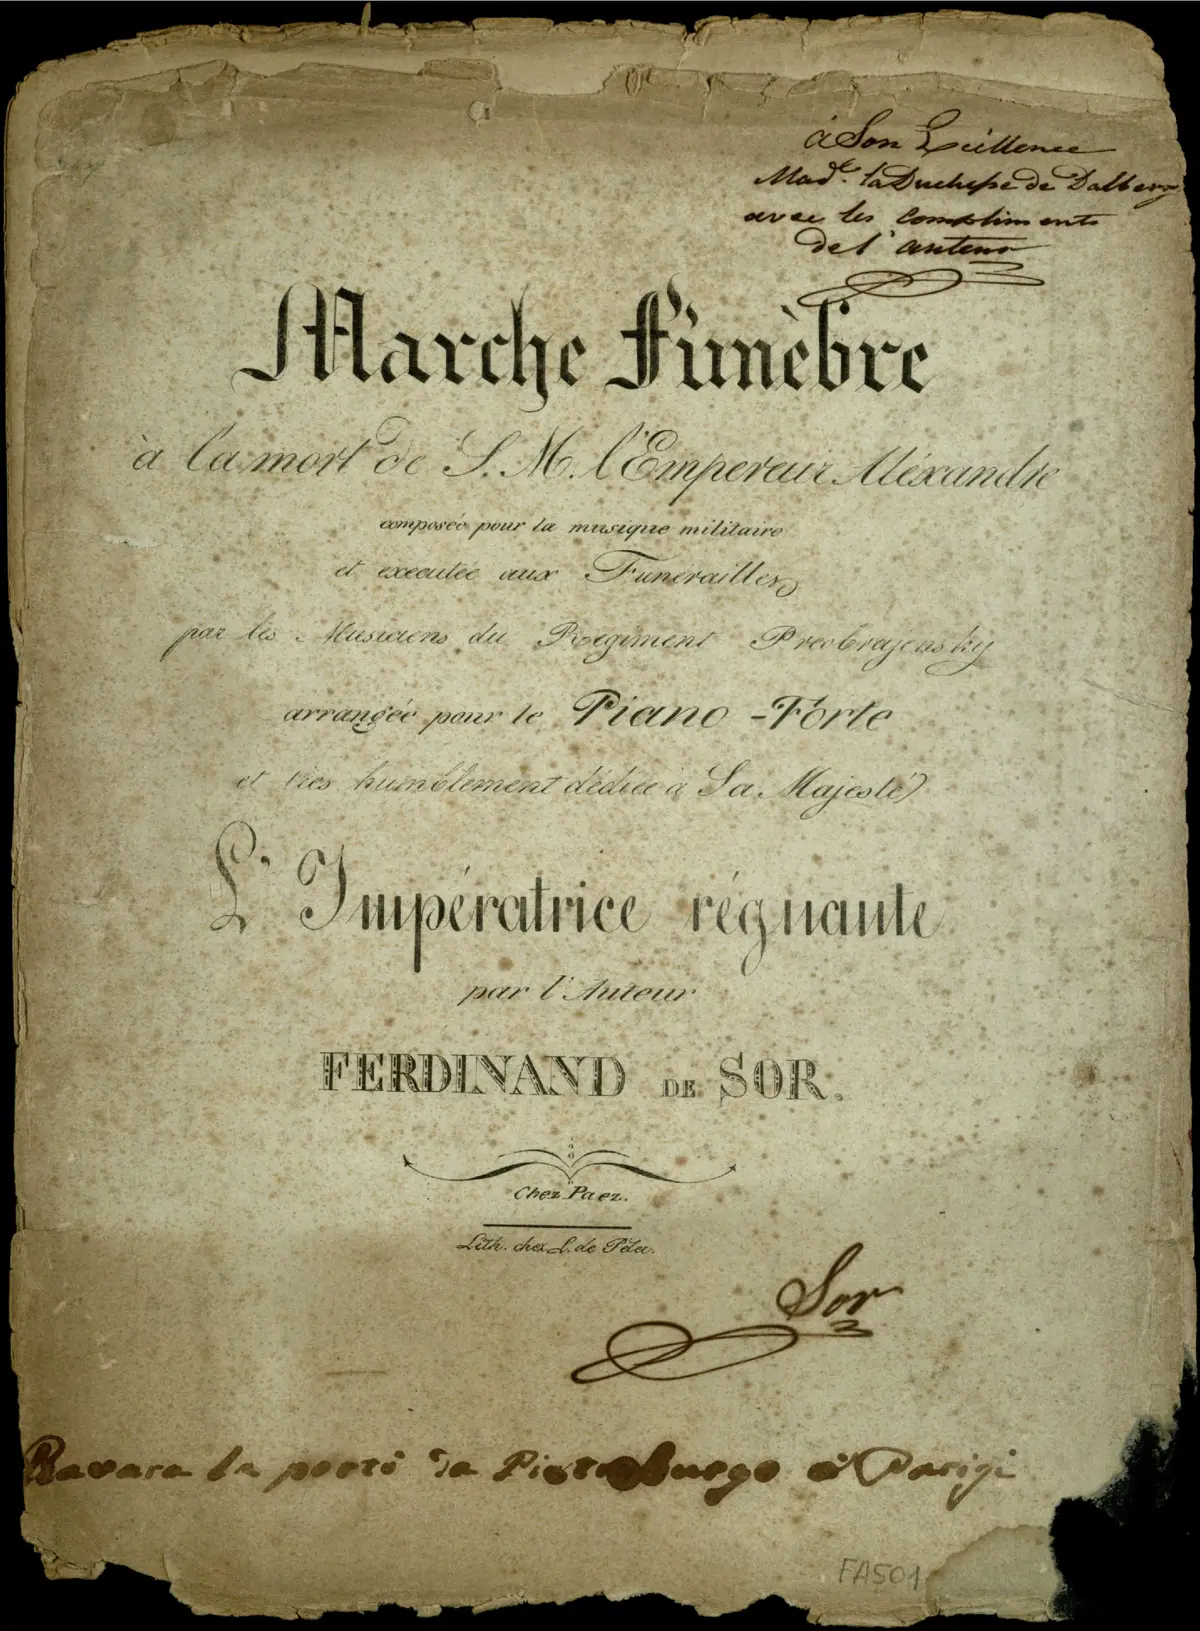 à Son Exellence
Made. la Duchesse de Dalberg
avec les compliments
de l'auteur
Marche Funèbre
à la mort de S. M. l'Empereur Aléxandre
composée pour la musique militaire
et executée aux Funerailles
par les Musiciens du Regiment Preobrajensky
arrangée pour le Piano-Forte
et tres humblement dédiée à Sa Majesté
L'Impératrice régnante
par l'Auteur
FERDINAND DE SOR.
Chez Paez.
Lith. chez L. de Péla.
Sor
Bavara la portò da Pietroburgo a Parigi
FA501